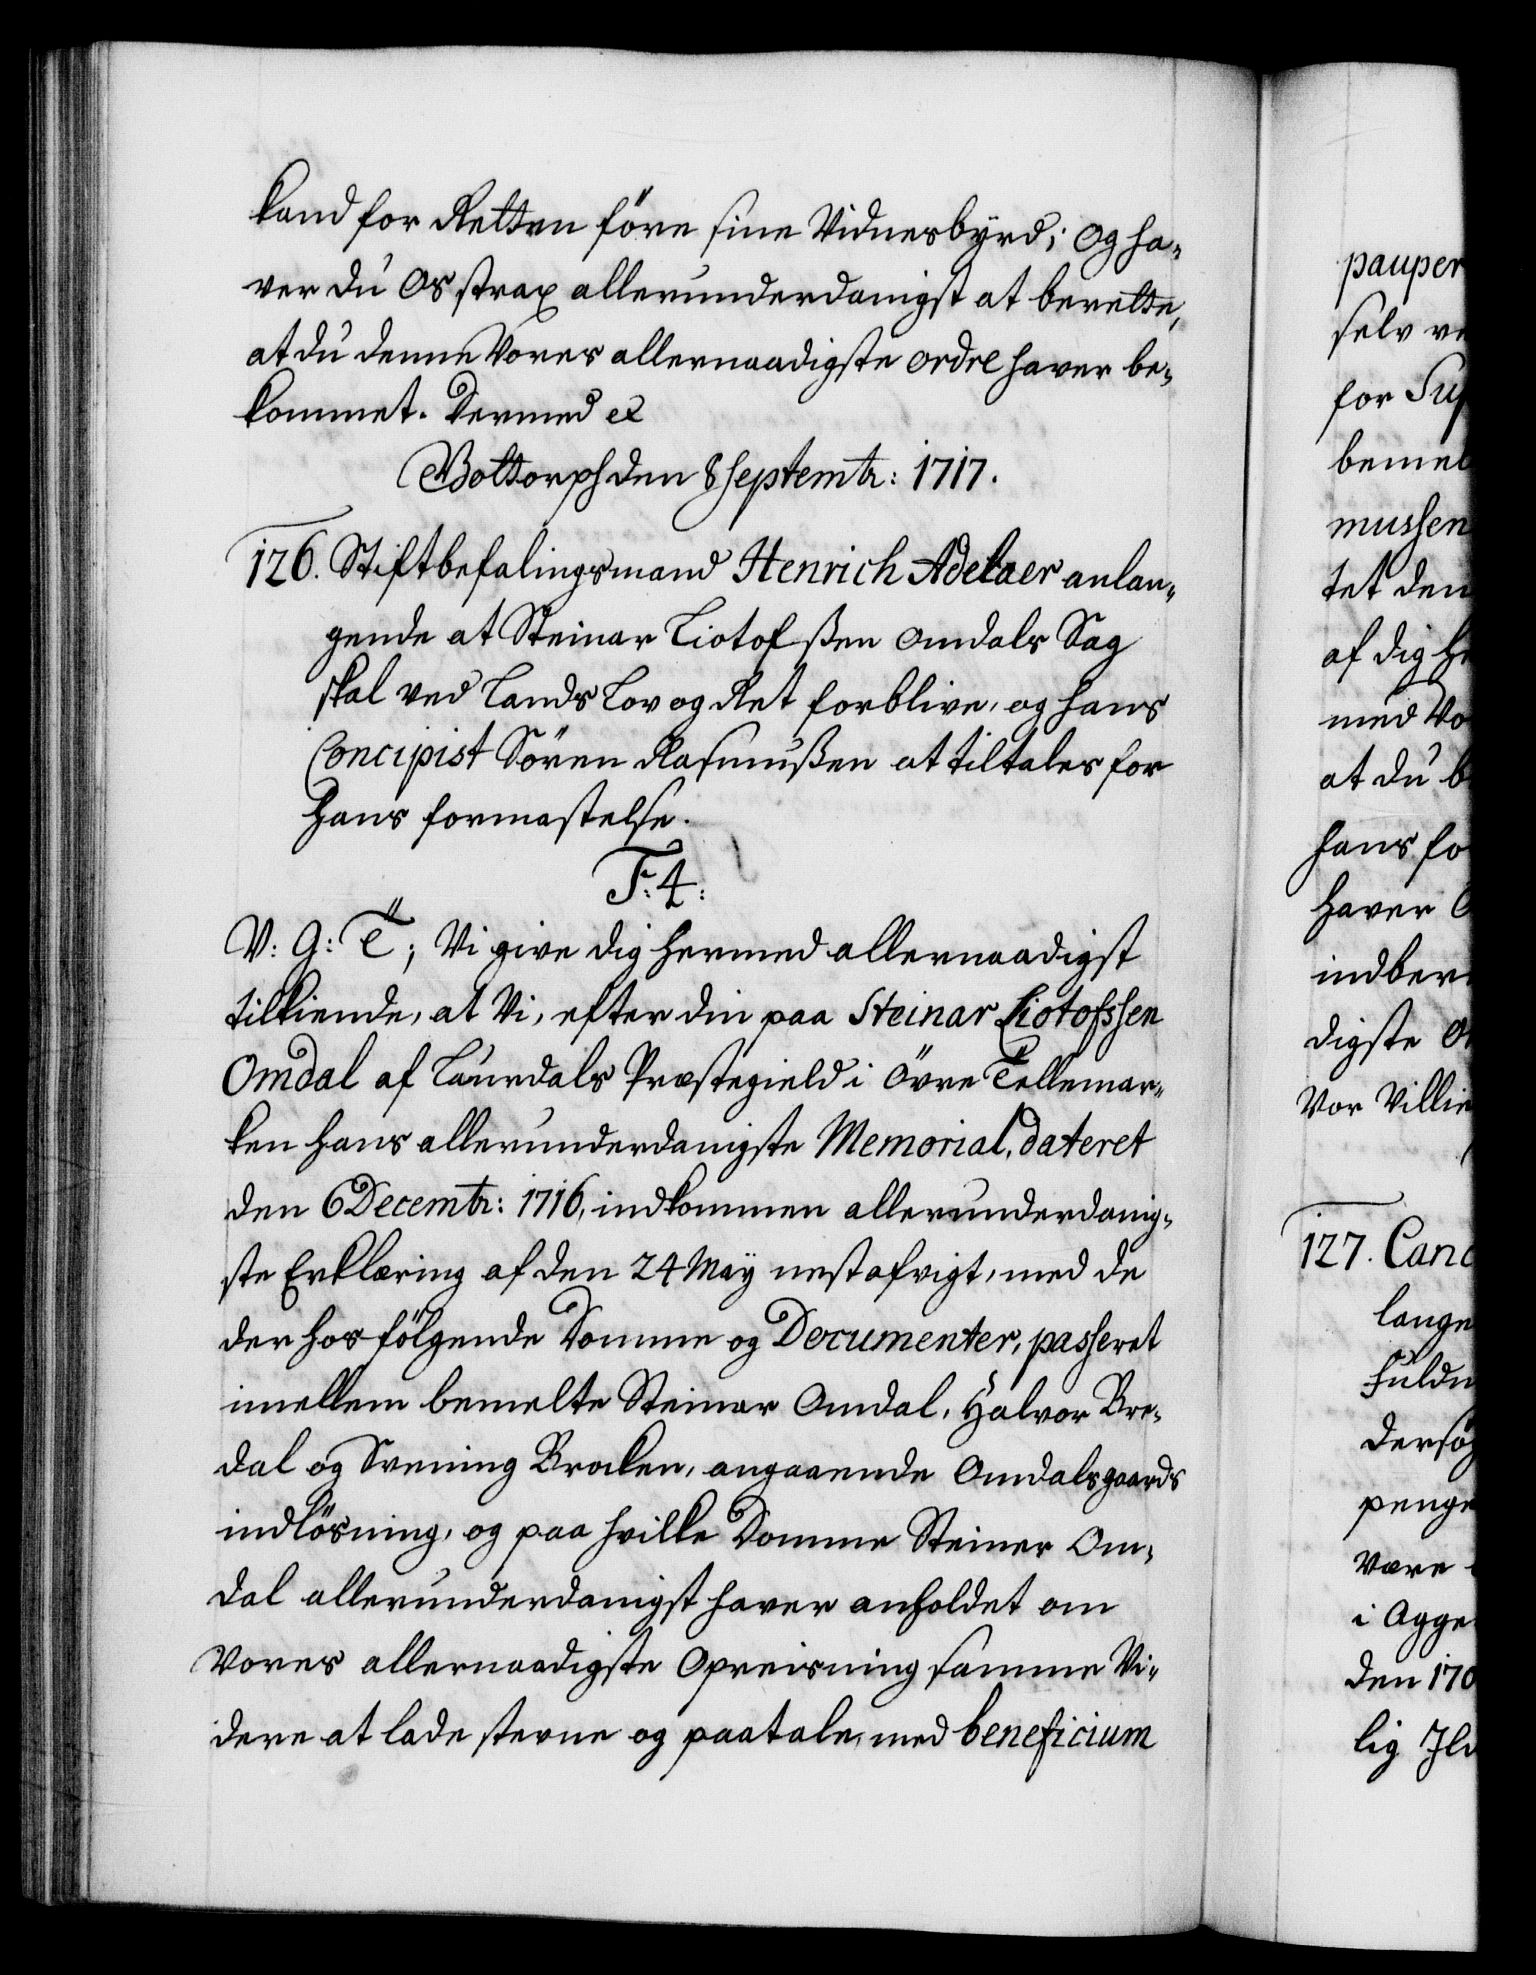 kand for Retten före sine Vidnesbyrd; Og ha-
ver du Os strax allerunderdanigst at berette,
at du denne Vores allernaadigste ordre haver be-
kommet. Dermed etc
Gottorph den 8 Septembr: 1717.
126. Stiftbefalingsmand Henrich Adelaer anlan-
gende at Steinar Liotofßen Omdals Sag
skal ved Lands Lov og Ret forblive, og hans
Concipist Sören Rasmußen at tiltales for
hans formastelse.
F: 4:
V: G: T; Vi give dig hermed allernaadigst
tilkiende, at Vi, efter din paa Steinar Liotofssen
Omdal af Laurdals Præstegield i Övre Tellemar-
ken hans allerunderdanigste Memorial, dateret
den 6 Decembr: 1716, indkommen allerunderdanig-
ste Erklæring af den 24 May nest afvigt, med de
der hos fölgende Domme og Documenter, passeret
imellem bemelte Steinar Omdal, Halvor Bre-
dal og Svening Brocken, angaaende Omdalsgaards
indlösning, og paa hvilke Domme Steiner Om-
dal allerunderdanigst haver anholdet om
Vores allernaadigste Opreisning samme Vi-
dere at lade stevne og paatale, med beneficium
pauper
selv ve
for Sup
bemel
mussen
tet den
af dig he
med Vo
at du b
hans fo
haver O
indber
digste O
Vor Villie
127. Canc
lange
fuldm
dersög
penge
være
i Agge
den 170
lig Ild